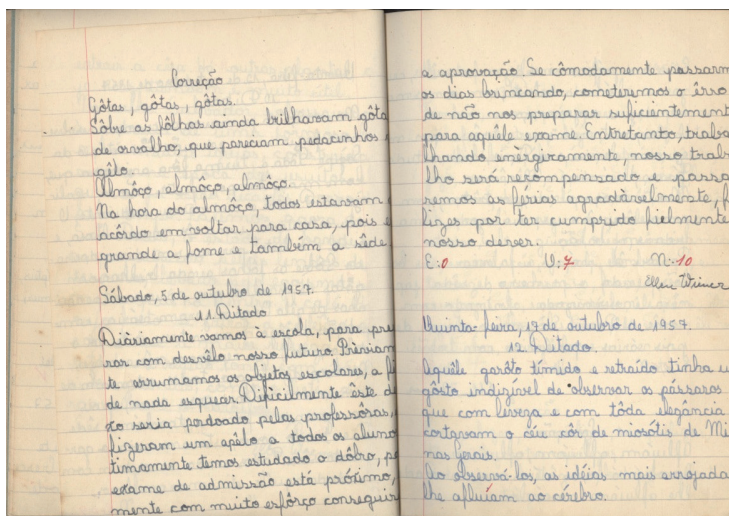 Correção
Gôtas, gôtas, gôtas.
Sôbre as fôlhas ainda brilhavam gôta
de orvalho, que pareciam pedacinhos
gêlo.
Almôço, almôço, almôço.
Na hora do almôço, todos estavam
acôrdo em voltar para casa, pois e
grande a fome e também a sêde
Sábado, 5 de outubro de 1957.
11. Ditado
Diàriamente vamos à escola, para pre
rar com desvêlo nosso futuro. Prèviam
te arrumamos os objetos escolares, a fi
de nada esquecer. Dificilmente êste de
xo seria perdoado pelas professôras,
fizeram um apêlo a todos os aluno
timamente temos estudado o dôbro, po
exame de admissão está próximo,
mente com muito esfôrço conseguir
a aprovação. Se cômodamente passarm
os dias brincando, cometeremos o êrro
de não nos preparar suficientement
para aquêle exame. Entretanto, traba
lhando enèrgicamente, nosso trab
lho será recompensado e passa
remos as férias agradàvelmente, f
lizes por ter cumprido fielmente
nosso dever.
E: 0 V: 7 N: 10
Quinta-feira, 17 de outubro de 1957.
12. Ditado.
Aquêle garôto tímido e retraído tinha u
gôsto indizível de observar os pássaros
que com leveza e com tôda elegância
cortavam o céu côr de miosótis de Mi
nas Gerais.
Ao observá-los, as idéias mais arrojada
lhe afluíam ao cérebro.